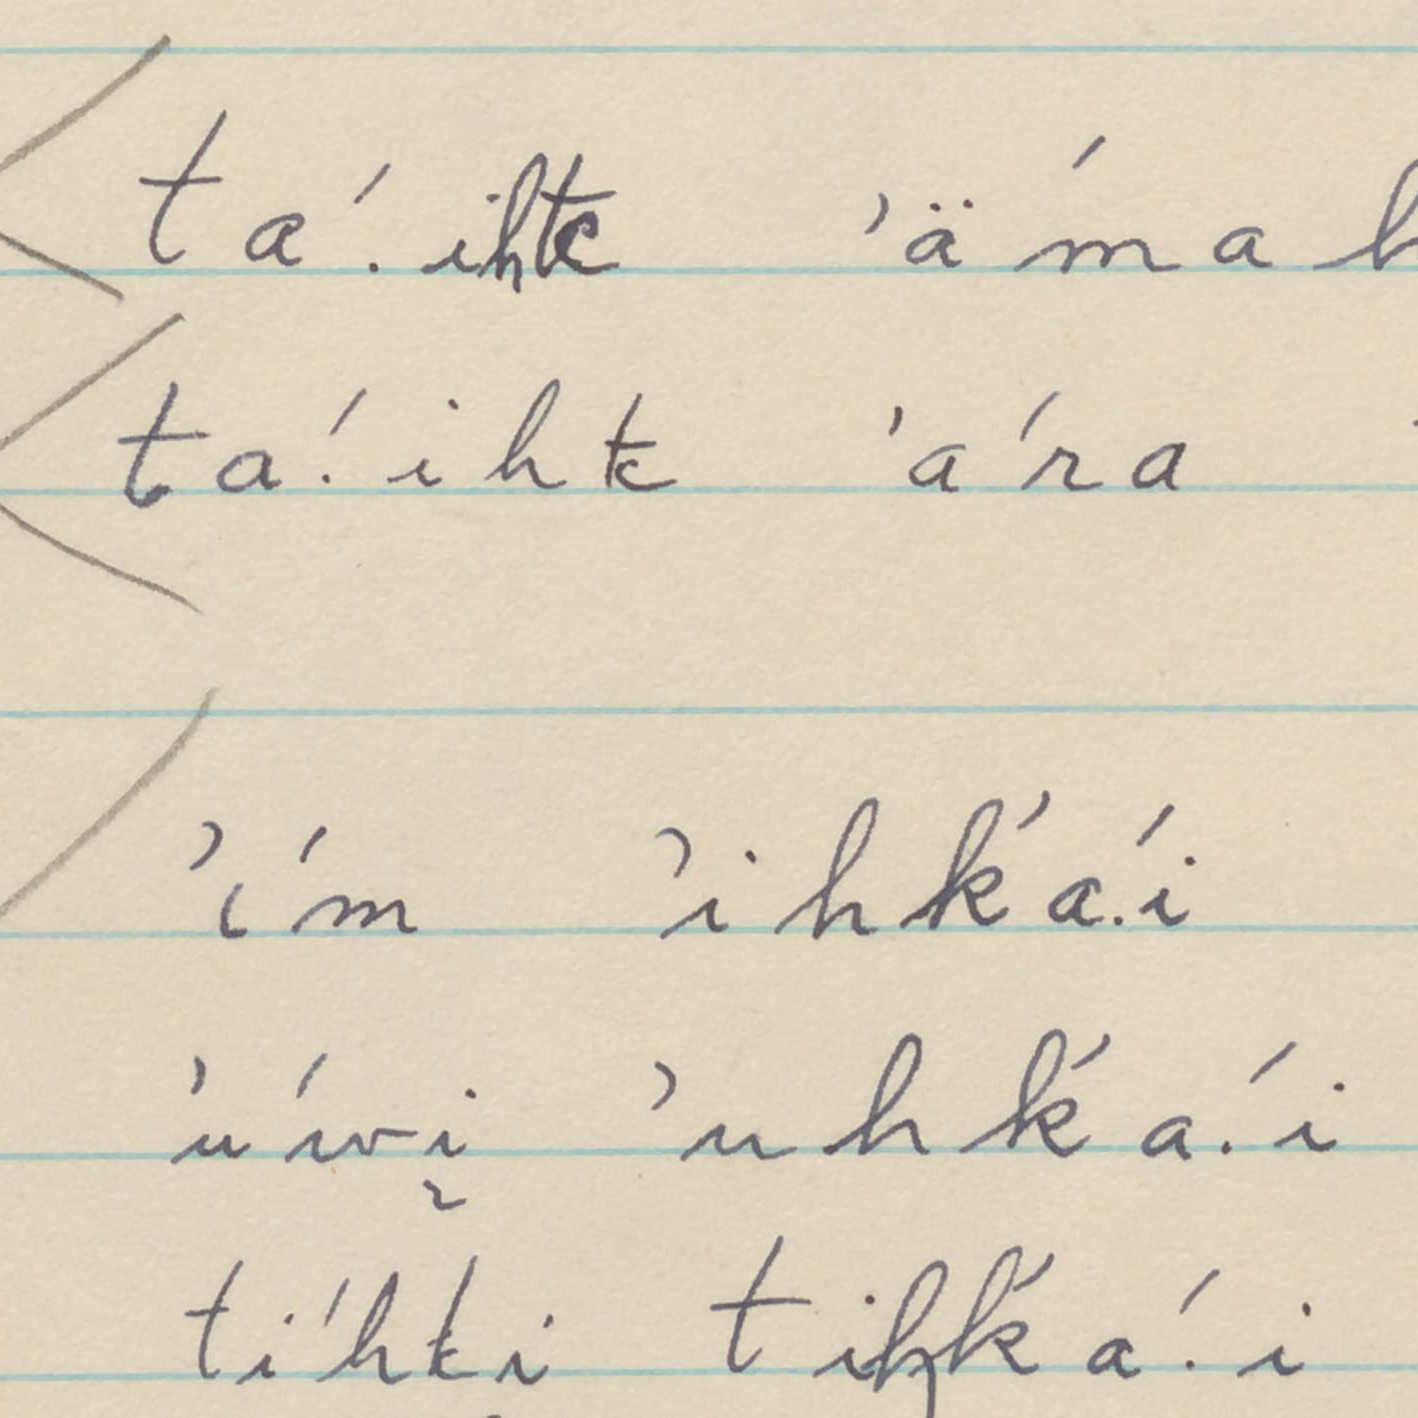 ta´.ihtc ’ä´mah
ta´.ihtc ’a´ra
’ι´m ’ihk’a´.i
’u´wi̡ ’uhk’a.´i
ti´htci tihk’a´.i